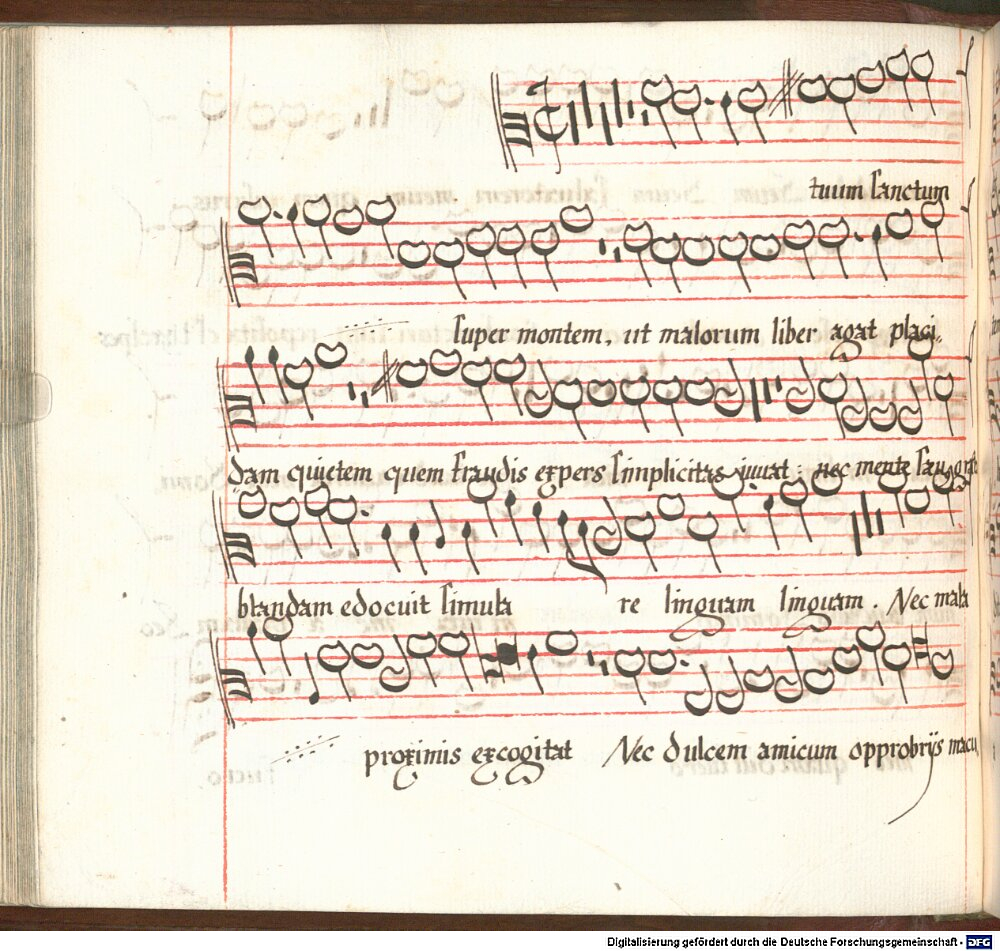 tuum sanctum
super montem, ut malorum liber agat placi„
dam quietem quem fraudis expers simplicitas iuuat: nec mente
blandam edocuit simula re linguam linguam. Nec mala
proximis excogitat Nec dulcem amicum opprobrijs macu„
Digitalisierung gefördert durch die Deutsche Forschungsgemeinschaft - DFG